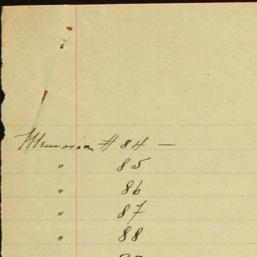 Memoria # 84 —
" 85
" 86
" 87
" 88